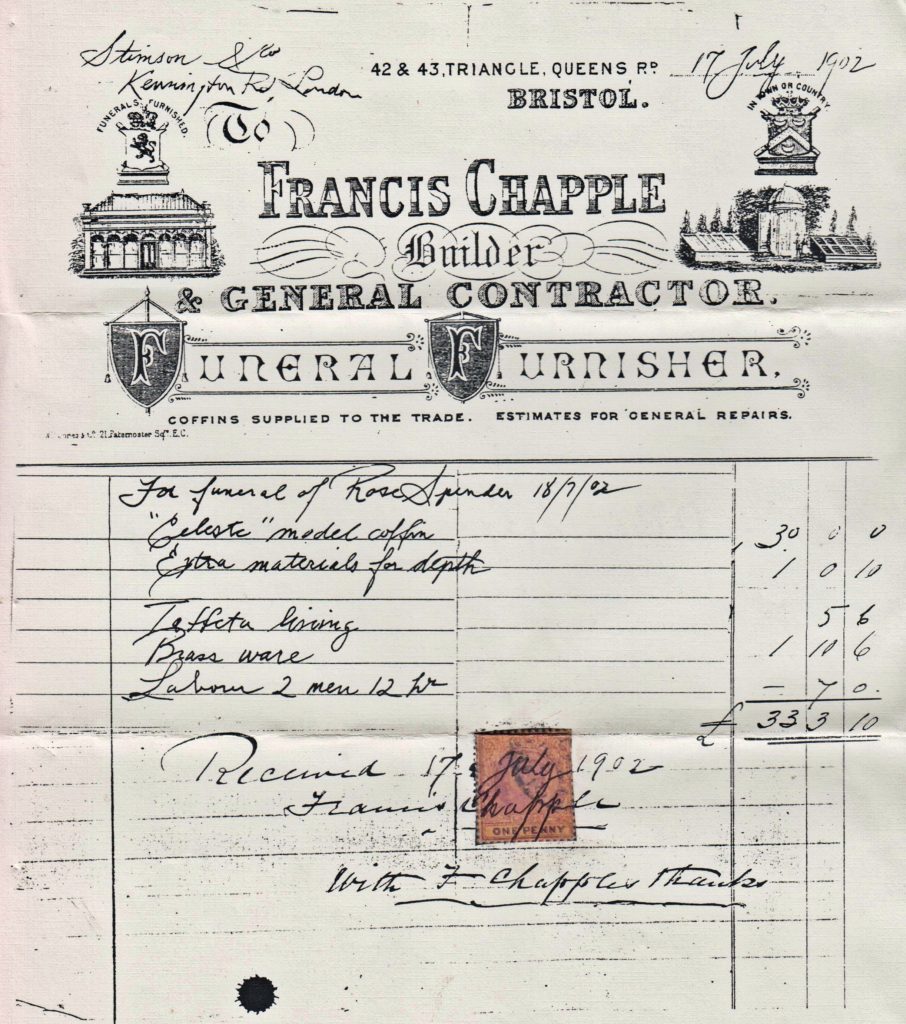 Stimson & Co
Kennington Rd, London
42 & 43, TRIANGLE, QUEENS RD
BRISTOL.
17 July 1902
FUNERALS FURNISHED.
IN TOWN OR COUNTRY.
To
FRANCIS CHAPPLE
Builder
& GENERAL CONTRACTOR.
FUNERAL FURNISHER,
COFFINS SUPPLIED TO THE TRADE. ESTIMATES FOR GENERAL REPAIRS.
21, Paternoster Sqre. E.C.
For funeral of Rose Spender 18/7/02
"Celeste" model coffin 30 0 0
Extra materials for depth 1 0 10
Taffeta lining 5 6
Brass ware 1 10 6
Labour 2 men 12 hr – 7 0.
£ 33 3 10
Received 17 July 1902
Francis Chapple
ONE PENNY
With F Chapples thanks